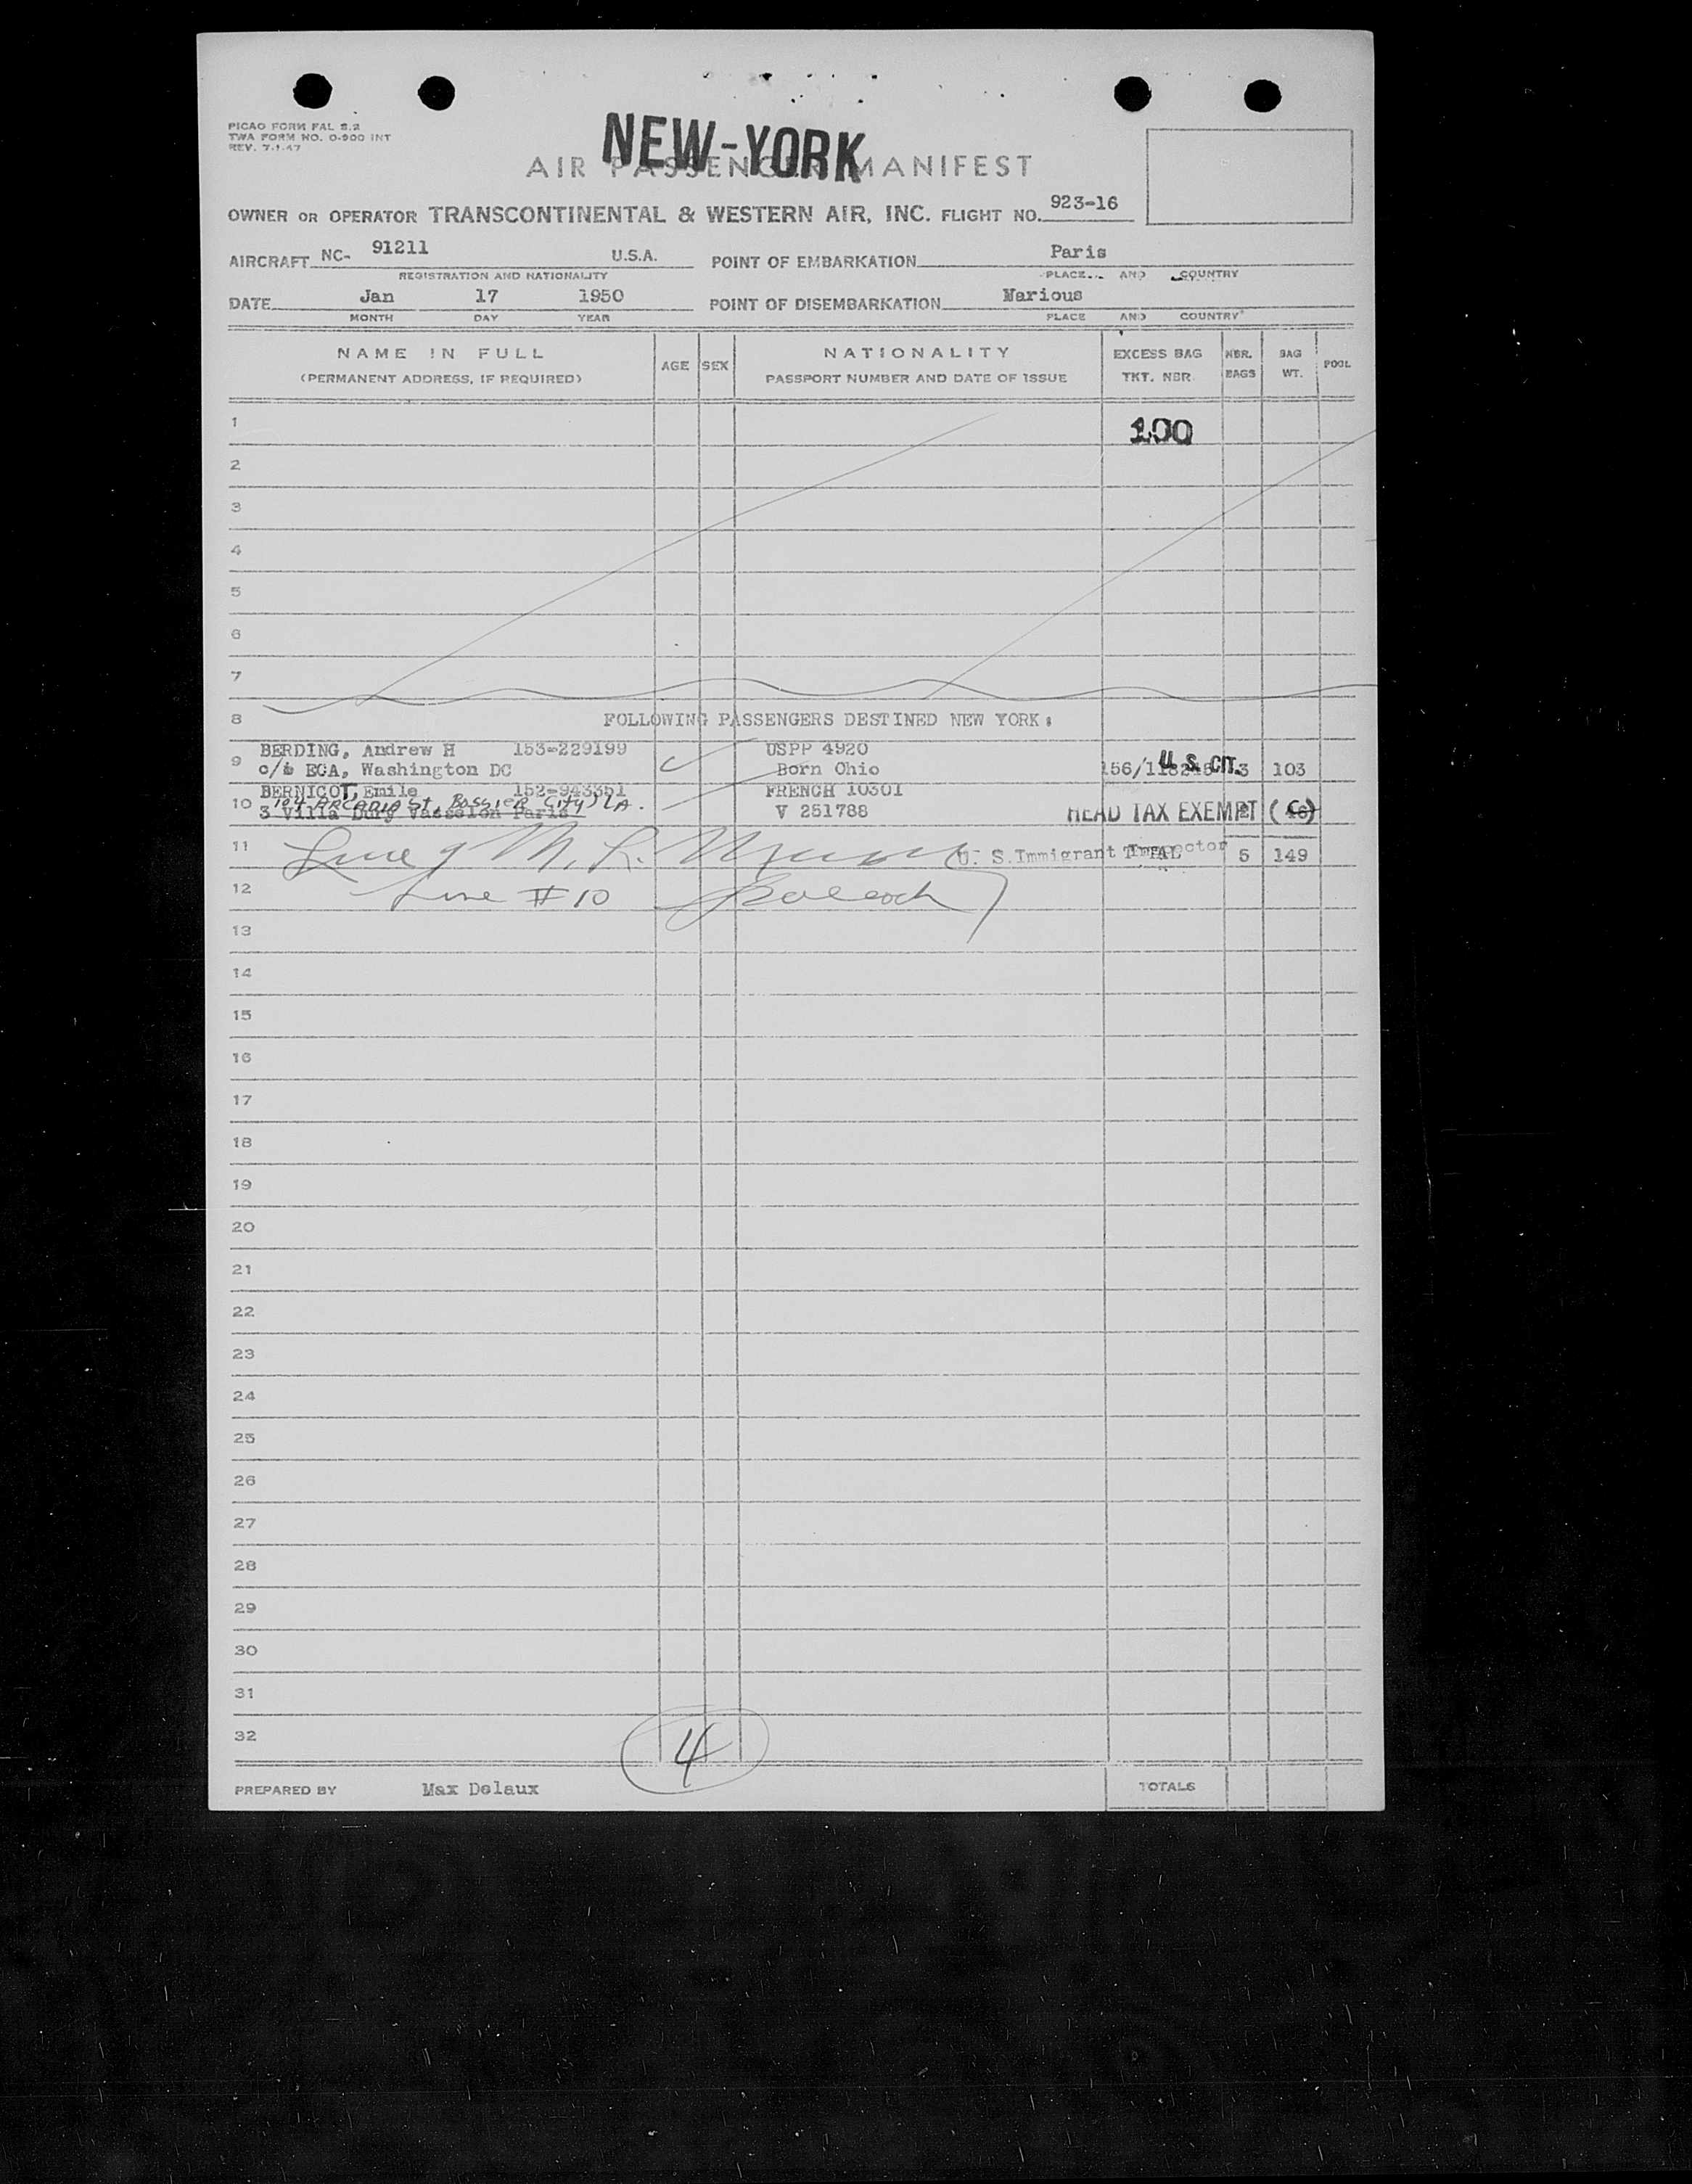 PICAO FORM FAL S.2
TWA FORM NO. O-900 INT
REV. 7-1-47
NEW-YORK
AIR PASSENGER MANIFEST
OWNER OR OPERATOR TRANSCONTINENTAL & WESTERN AIR, INC. FLIGHT NO. 923-16
AIRCRAFT NC- 91211 U.S.A. POINT OF EMBARKATION Paris
REGISTRATION AND NATIONALITY PLACE AND COUNTRY
DATE Jan 17 1950 POINT OF DISEMBARKATION Narious
MONTH DAY YEAR PLACE AND COUNTRY
NAME IN FULL AGE SEX NATIONALITY EXCESS BAG NBR. BAG POOL
(PERMANENT ADDRESS, IF REQUIRED) PASSPORT NUMBER AND DATE OF ISSUE TKT. NBR BAGS WT.
1 100
2
3
4
5
6
7
8 FOLLOWING PASSENGERS DESTINED NEW YORK:
9 BERDING, Andrew H 153-229199 USPP 4920
c/o ECA, Washington DC Born Ohio 156/ U.S. CIT. 3 103
10 BERNICOT, Emile 152-943351 FRENCH 10301
104 ARCADIA St. BOSSIER City) LA.
3 Villa Dury Vasselon Paris V 251788 HEAD TAX EXEMPT
11 Line 9 M. R. U. S. Immigrant Inspector TOTAL 5 149
12 Line #10
13
14
15
16
17
18
19
20
21
22
23
24
25
26
27
28
29
30
31
32
4
PREPARED BY Max Delaux TOTALS